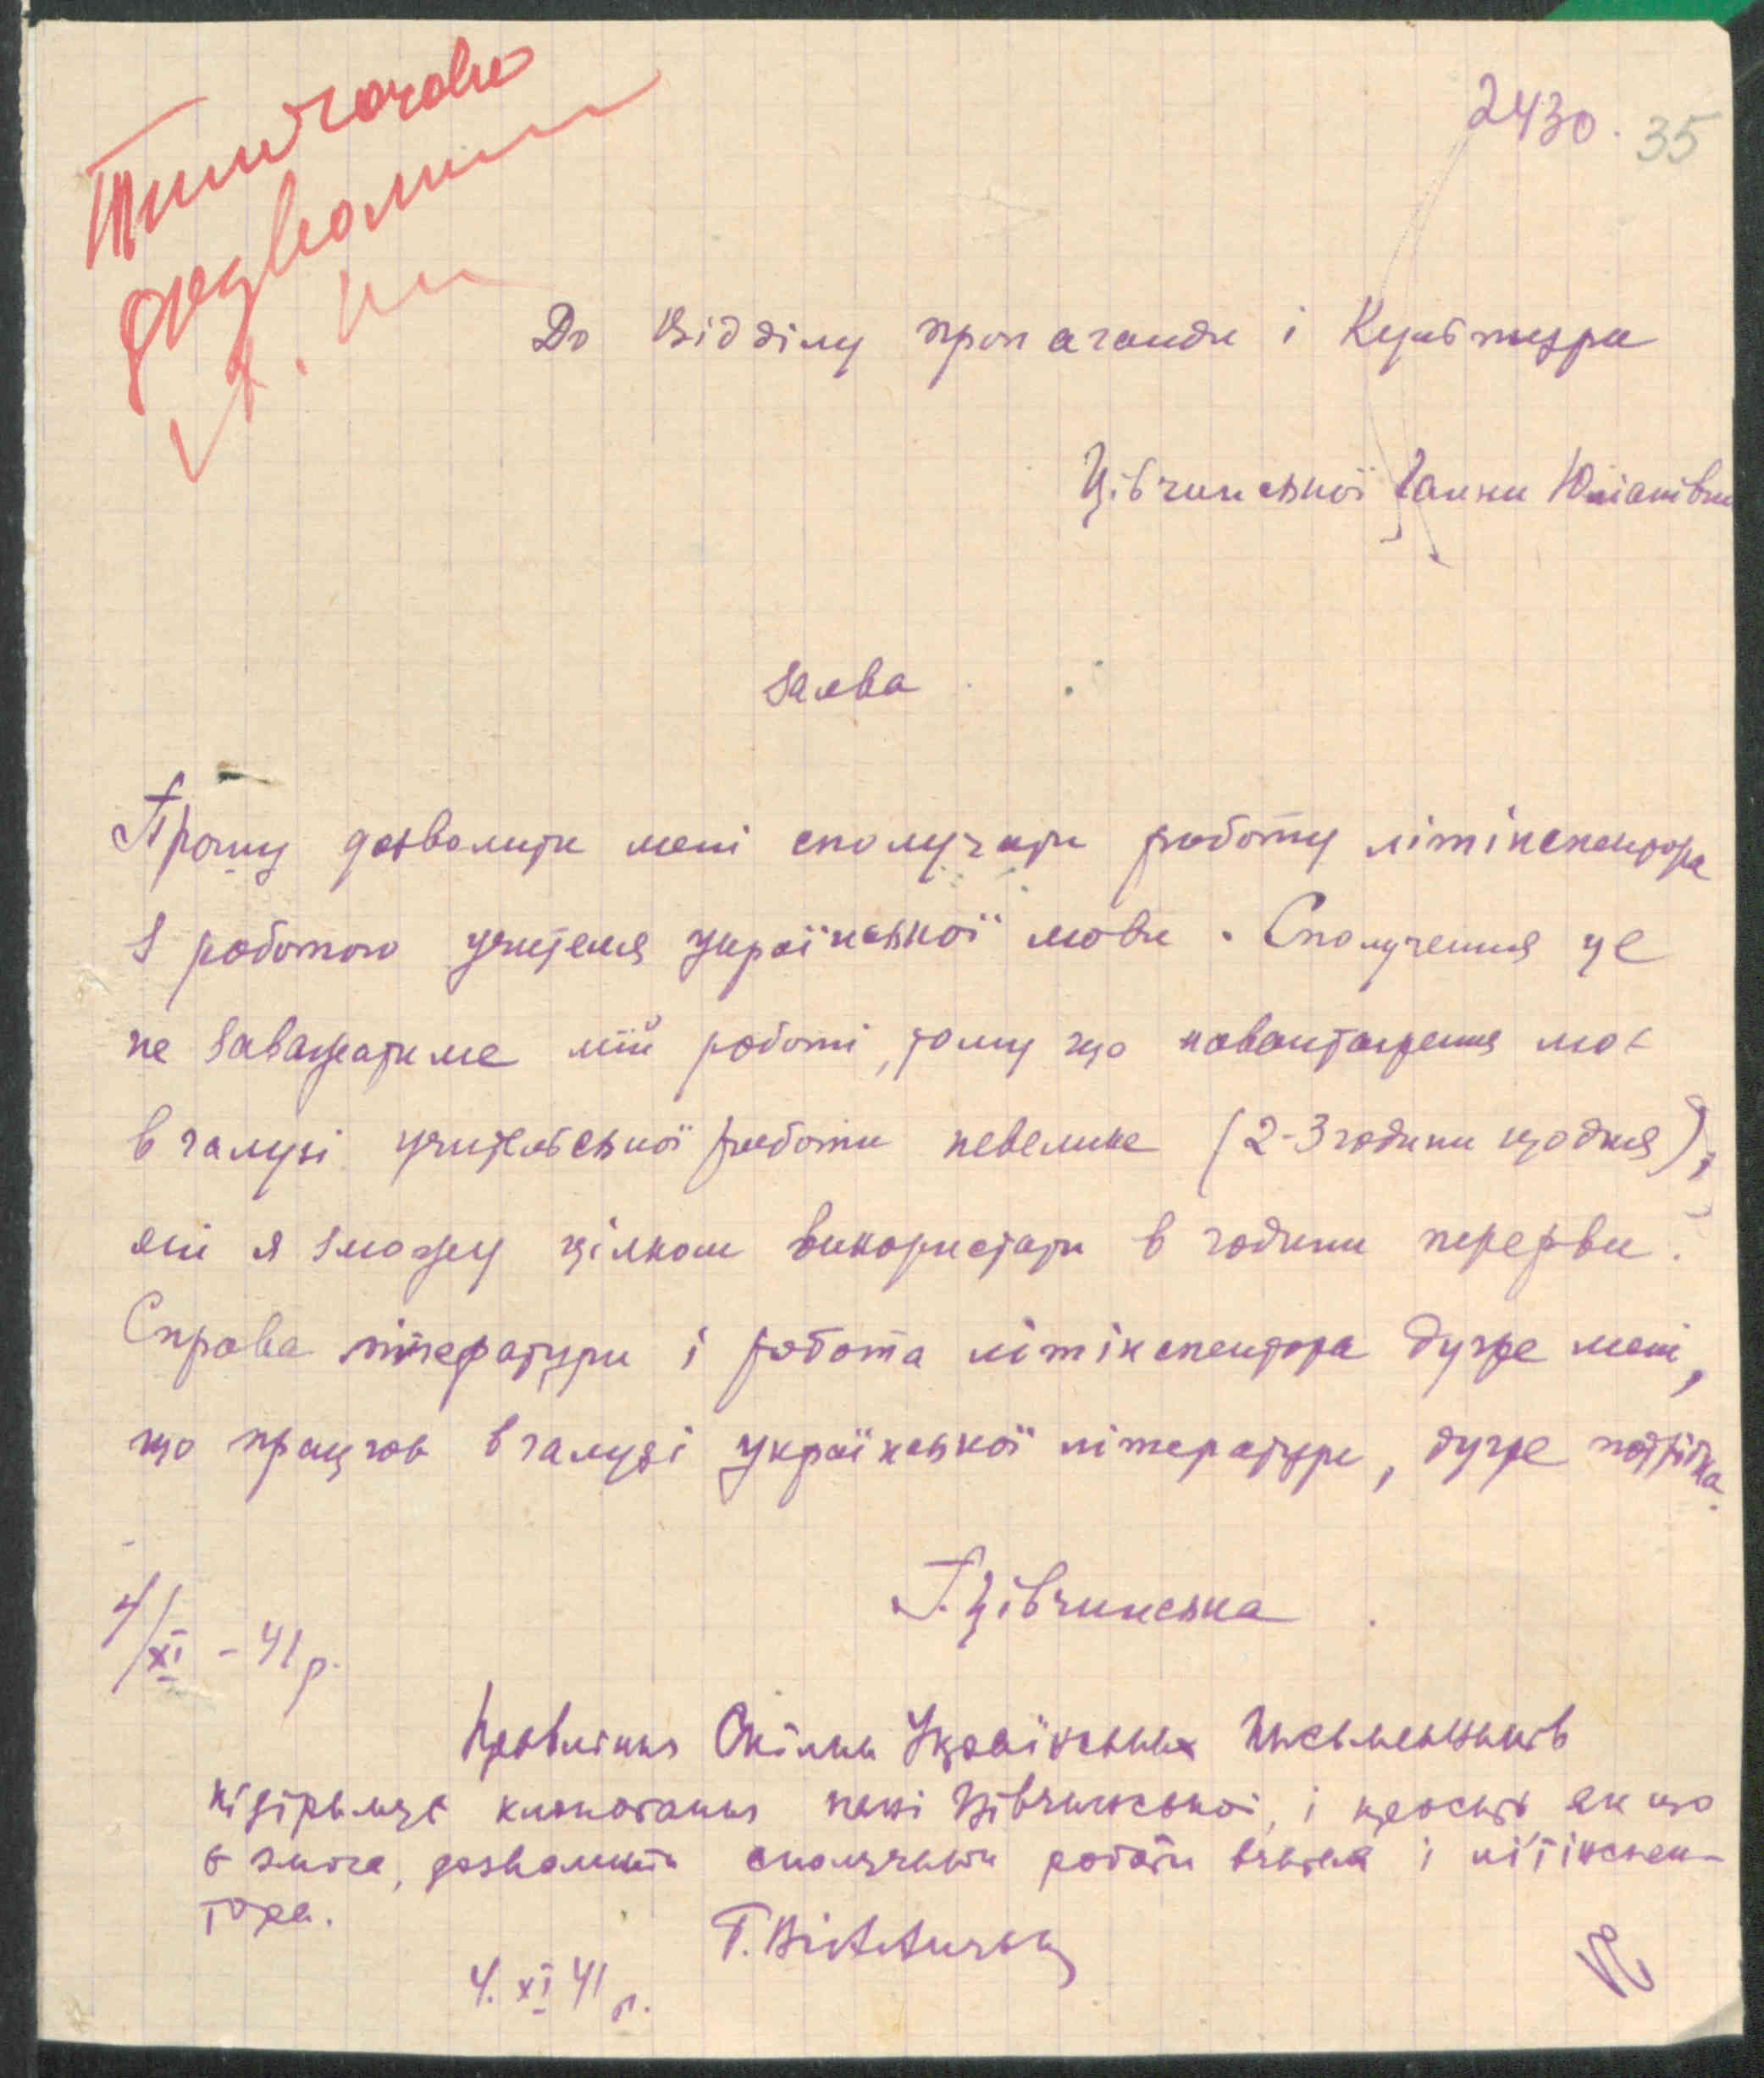 Тимчасово
дозволити
2430. 35
До Відділу пропаганди і Культури
Цівчинської Ганни Юліанівни
Заява
Прошу дозволити мені сполучати роботу літінспектора
з роботою учителя української мови. Сполучення це
не заважатиме мій роботі, тому що навантаження моє
в галузі учительської роботи невелике (2-3 години щодня),
які я зможу цілком використати в години перерви.
Справа літератури і робота літінспектора дуже мені,
що працюю в галузі української літератури, дуже потрібна.
4/XI - 41 р.
Г. Цівчинська
Правління Спілки Українських Письменників
підтримує клопотання пані Цівчинської, і просить якщо
є змога, дозволити сполучати роботи вчителя і літінспек-
тора.
4. XI 41 р.